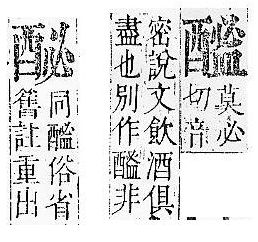 醯莫必
切音
密說文飲酒俱
盡也別作醯非
䤉同醯俗省
舊註重出